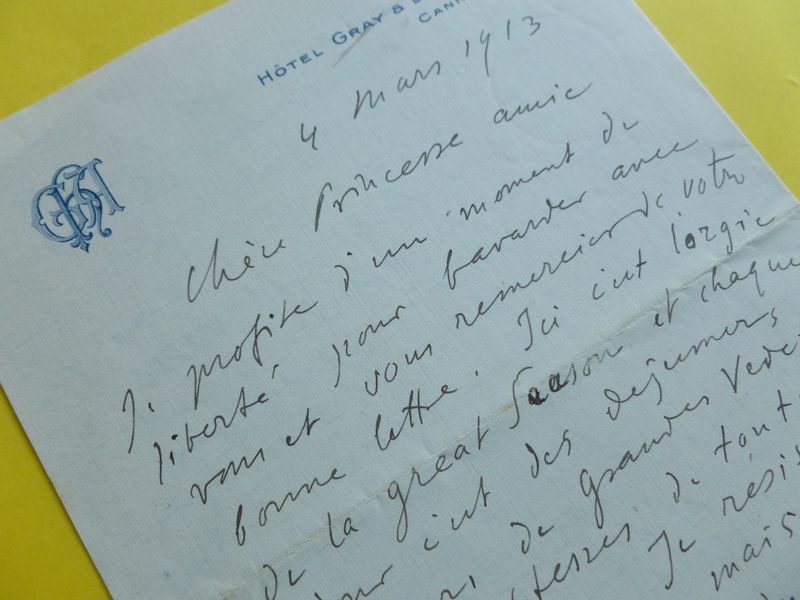 HÔTEL GRAY &
CANN
4 mars 1913
Chère Princesse amie
Je profite d'un moment de
liberté, pour bavarder avec
vous et vous remercier de votre
bonne lettre. Ici c'est l'orgie
de la great Season et chaque
jour c'est des dejeuners,
de grandes Vede
de tout
Je résis
mais